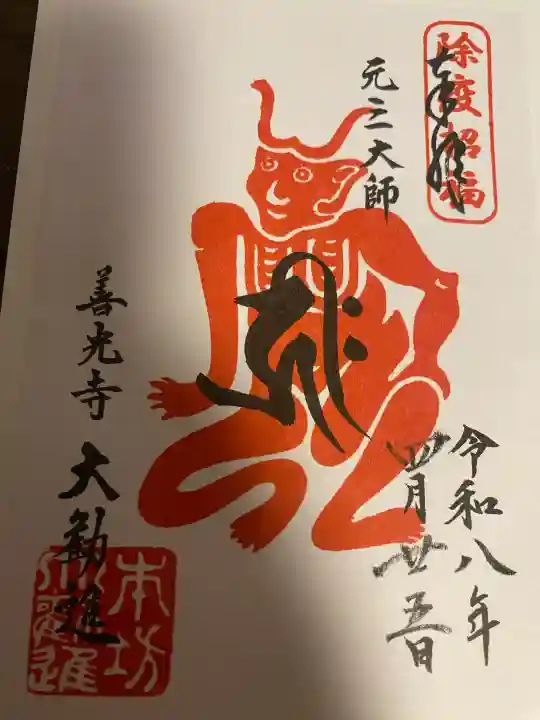 奉拝
除疫招福
元三大師
令和八年
四月廿五日
善光寺 大勧進
本坊
大勧進